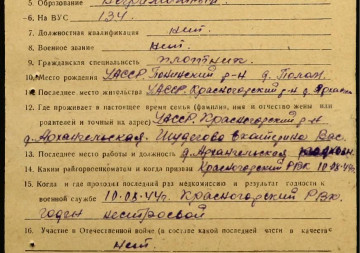 5. Образование неграмотный
6. На ВУС 134
7. Должностная квалификация нет
8. Военное звание нет.
9. Гражданская специальность плотник
10. Место рождения УАССР. д-н д. Полом.
11. Последнее место жительства УАССР. Красногорский р-н д. Арханг
12. Где проживает в настоящее время семья (фамилия, имя и отчество жены или
родителей и точный адрес) УАССР. Красногорский р-н
д. Архангельская. Екатерина Вас.
14. Последнее место работы и должность д. Архангельская
Каким райгорвоенкоматом и когда призван Красногорский РВК 10.03.44г.
15. Когда и где проходил последний раз медкомиссию и результат годности к
военной службе 10.03.44г. Красногорский РВК.
годен нестроевой
16. Участие в Отечественной войне (в составе какой последней части в качеств
нет.